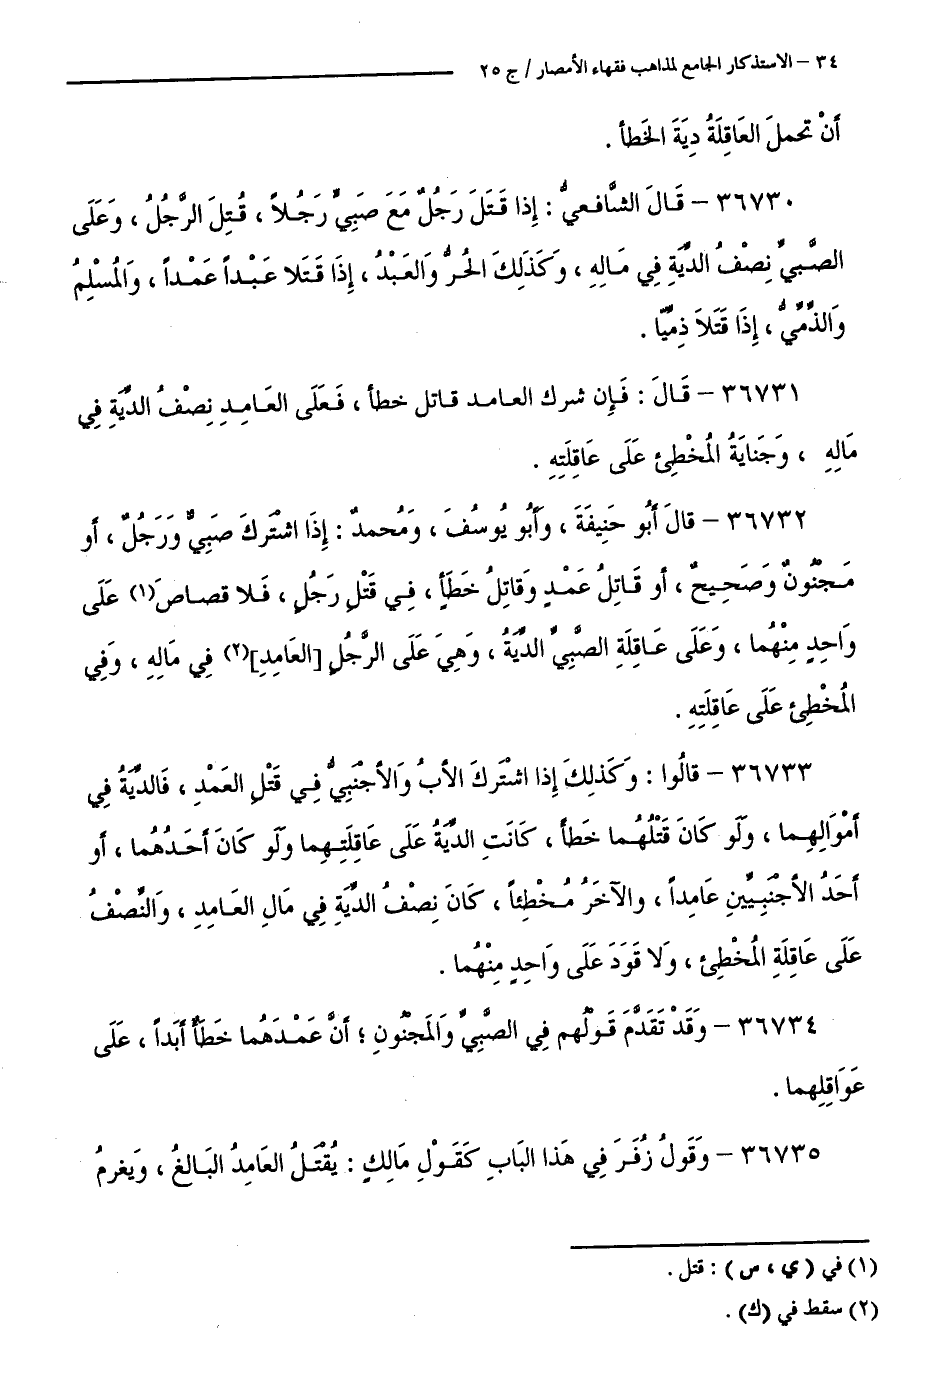 ٣٤ – الاستذكار الجامع لمذاهب فقهاء الأمصار / ج ٢٥
أَنْ تحملَ العَاقِلَةُ دِيَةَ الخَطأ .
٣٦٧٣٠ – قَالَ الشَّافعيُّ : إِذا قَتَلَ رَجُلٌ مَعَ صَبِيٍّ رَجُلاً ، قُتِلَ الرَّجُلُ ، وَعَلَى
الصَّبِيِّ نِصْفُ الدِّيَةِ فِي مَالِهِ ، وَكَذَلِكَ الحُرُّ وَالعَبْدُ ، إِذَا قَتَلا عَبْداً عَمْداً ، وَالمُسْلِمُ
وَالذِّمِّيُّ ، إِذَا قَتَلاَ ذِمِّيّا .
٣٦٧٣١ – قَالَ : فَإِن شرك العامد قاتل خطأ ، فَعَلَى العَامِدِ نِصْفُ الدِّيَةِ فِي
مَالِهِ ، وَجَنَايَةُ المُخْطِئِ عَلَى عَاقِلَتِهِ .
٣٦٧٣٢ – قالَ أَبُو حَنِيفَةَ ، وَأَبُو يُوسُفَ ، وَمُحمدٌ : إِذَا اشْتَرَكَ صَبِيٌّ وَرَجُلٌ ، أو
مَجْنُونٌ وَصَحِيحٌ ، أو قَاتِلُ عَمْدٍ وَقاتِلُ خَطَأٍ ، فِي قَتْلِ رَجُلٍ ، فَلا قصاصَ(١) عَلَى
وَاحِدٍ مِنْهُما ، وَعَلَى عَاقِلَةِ الصَّبِيِّ الدِّيَةُ ، وَهِيَ عَلَى الرَّجُلِ [العَامِدِ](٢) فِي مَالِهِ ، وَفِي
المُخْطِئِ عَلَى عَاقِلَتِهِ .
٣٦٧٣٣ – قالُوا : وَكَذلِكَ إِذا اشْتَرَكَ الأَبُ وَالأَجْنَبِيُّ فِي قَتْلِ العَمْدِ ، فَالدِّيَةُ فِي
أَمْوَالِهِما ، وَلَو كَانَ قَتْلُهُما خَطَأ ، كَانَتِ الدِّيَةُ عَلَى عَاقِلَتِهِما ولَو كانَ أَحَدُهُما ، أو
أحَدُ الأَجْنَبِيَّيْنِ عَامِداً ، والآخَرُ مُخْطِئاً ، كَانَ نِصْفُ الدِّيَةِ فِي مَالِ العَامِدِ ، وَالنِّصْفُ
عَلَى عَاقِلَةِ المُخْطِئِ ، وَلا قَوَدَ عَلَى وَاحِدٍ مِنْهُما .
٣٦٧٣٤ – وَقَدْ تَقَدَّمَ قَولُهم فِي الصَّبِيِّ وَالمَجْنُونِ ؛ أَنَّ عَمْدَهُما خَطَأٌ أَبَداً ، عَلَى
عَوَاقِلِهِما .
٣٦٧٣٥ – وَقَولُ زُفَرَ فِي هَذا البَابِ كَقَولِ مَالِكٍ : يُقْتَلُ العَامِدُ البَالِغُ ، وَيَغرمُ
(١) في (ي ، س) : قتل .
(٢) سقط في (ك) .